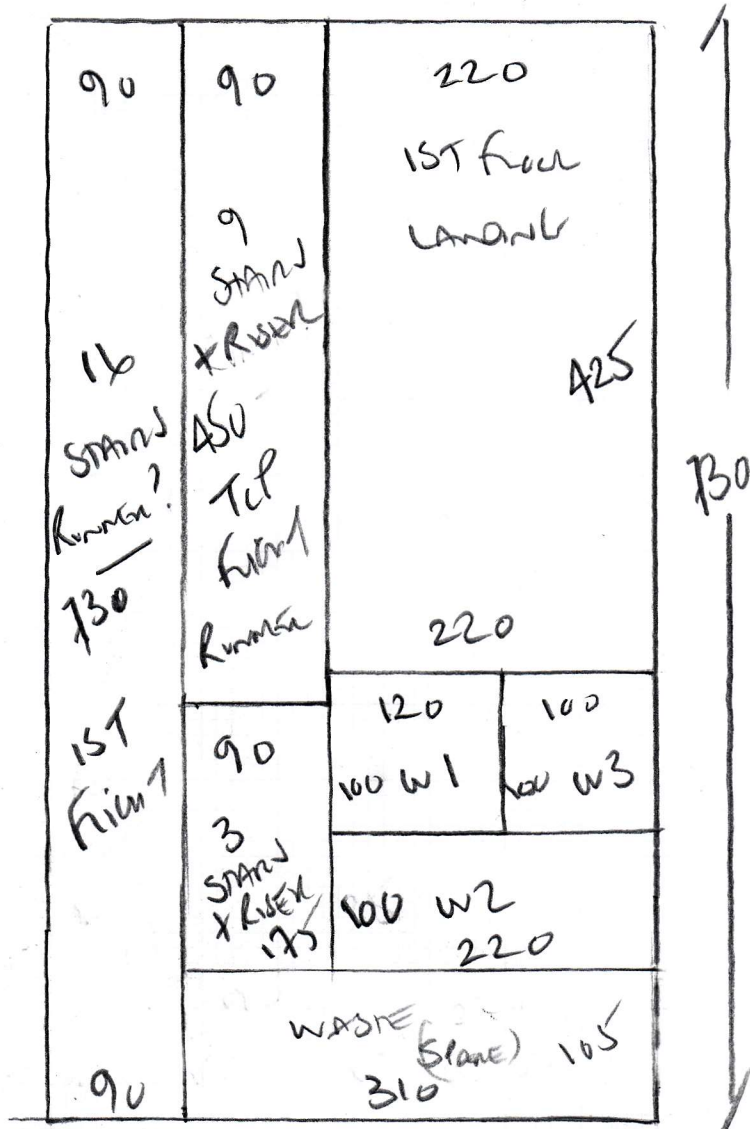 90
16
STAIRS
RUNNER?
730
1ST
FLIGHT
90
90
9
STAIRS
+ RISER
450
TOP
FLIGHT
RUNNER
90
3
STAIRS
+ RISER
175
220
1ST FLOOR
LANDING
425
220
120
100 W1
100
100 W3
100 W2
220
WASTE
(SPARE)
105
310
730